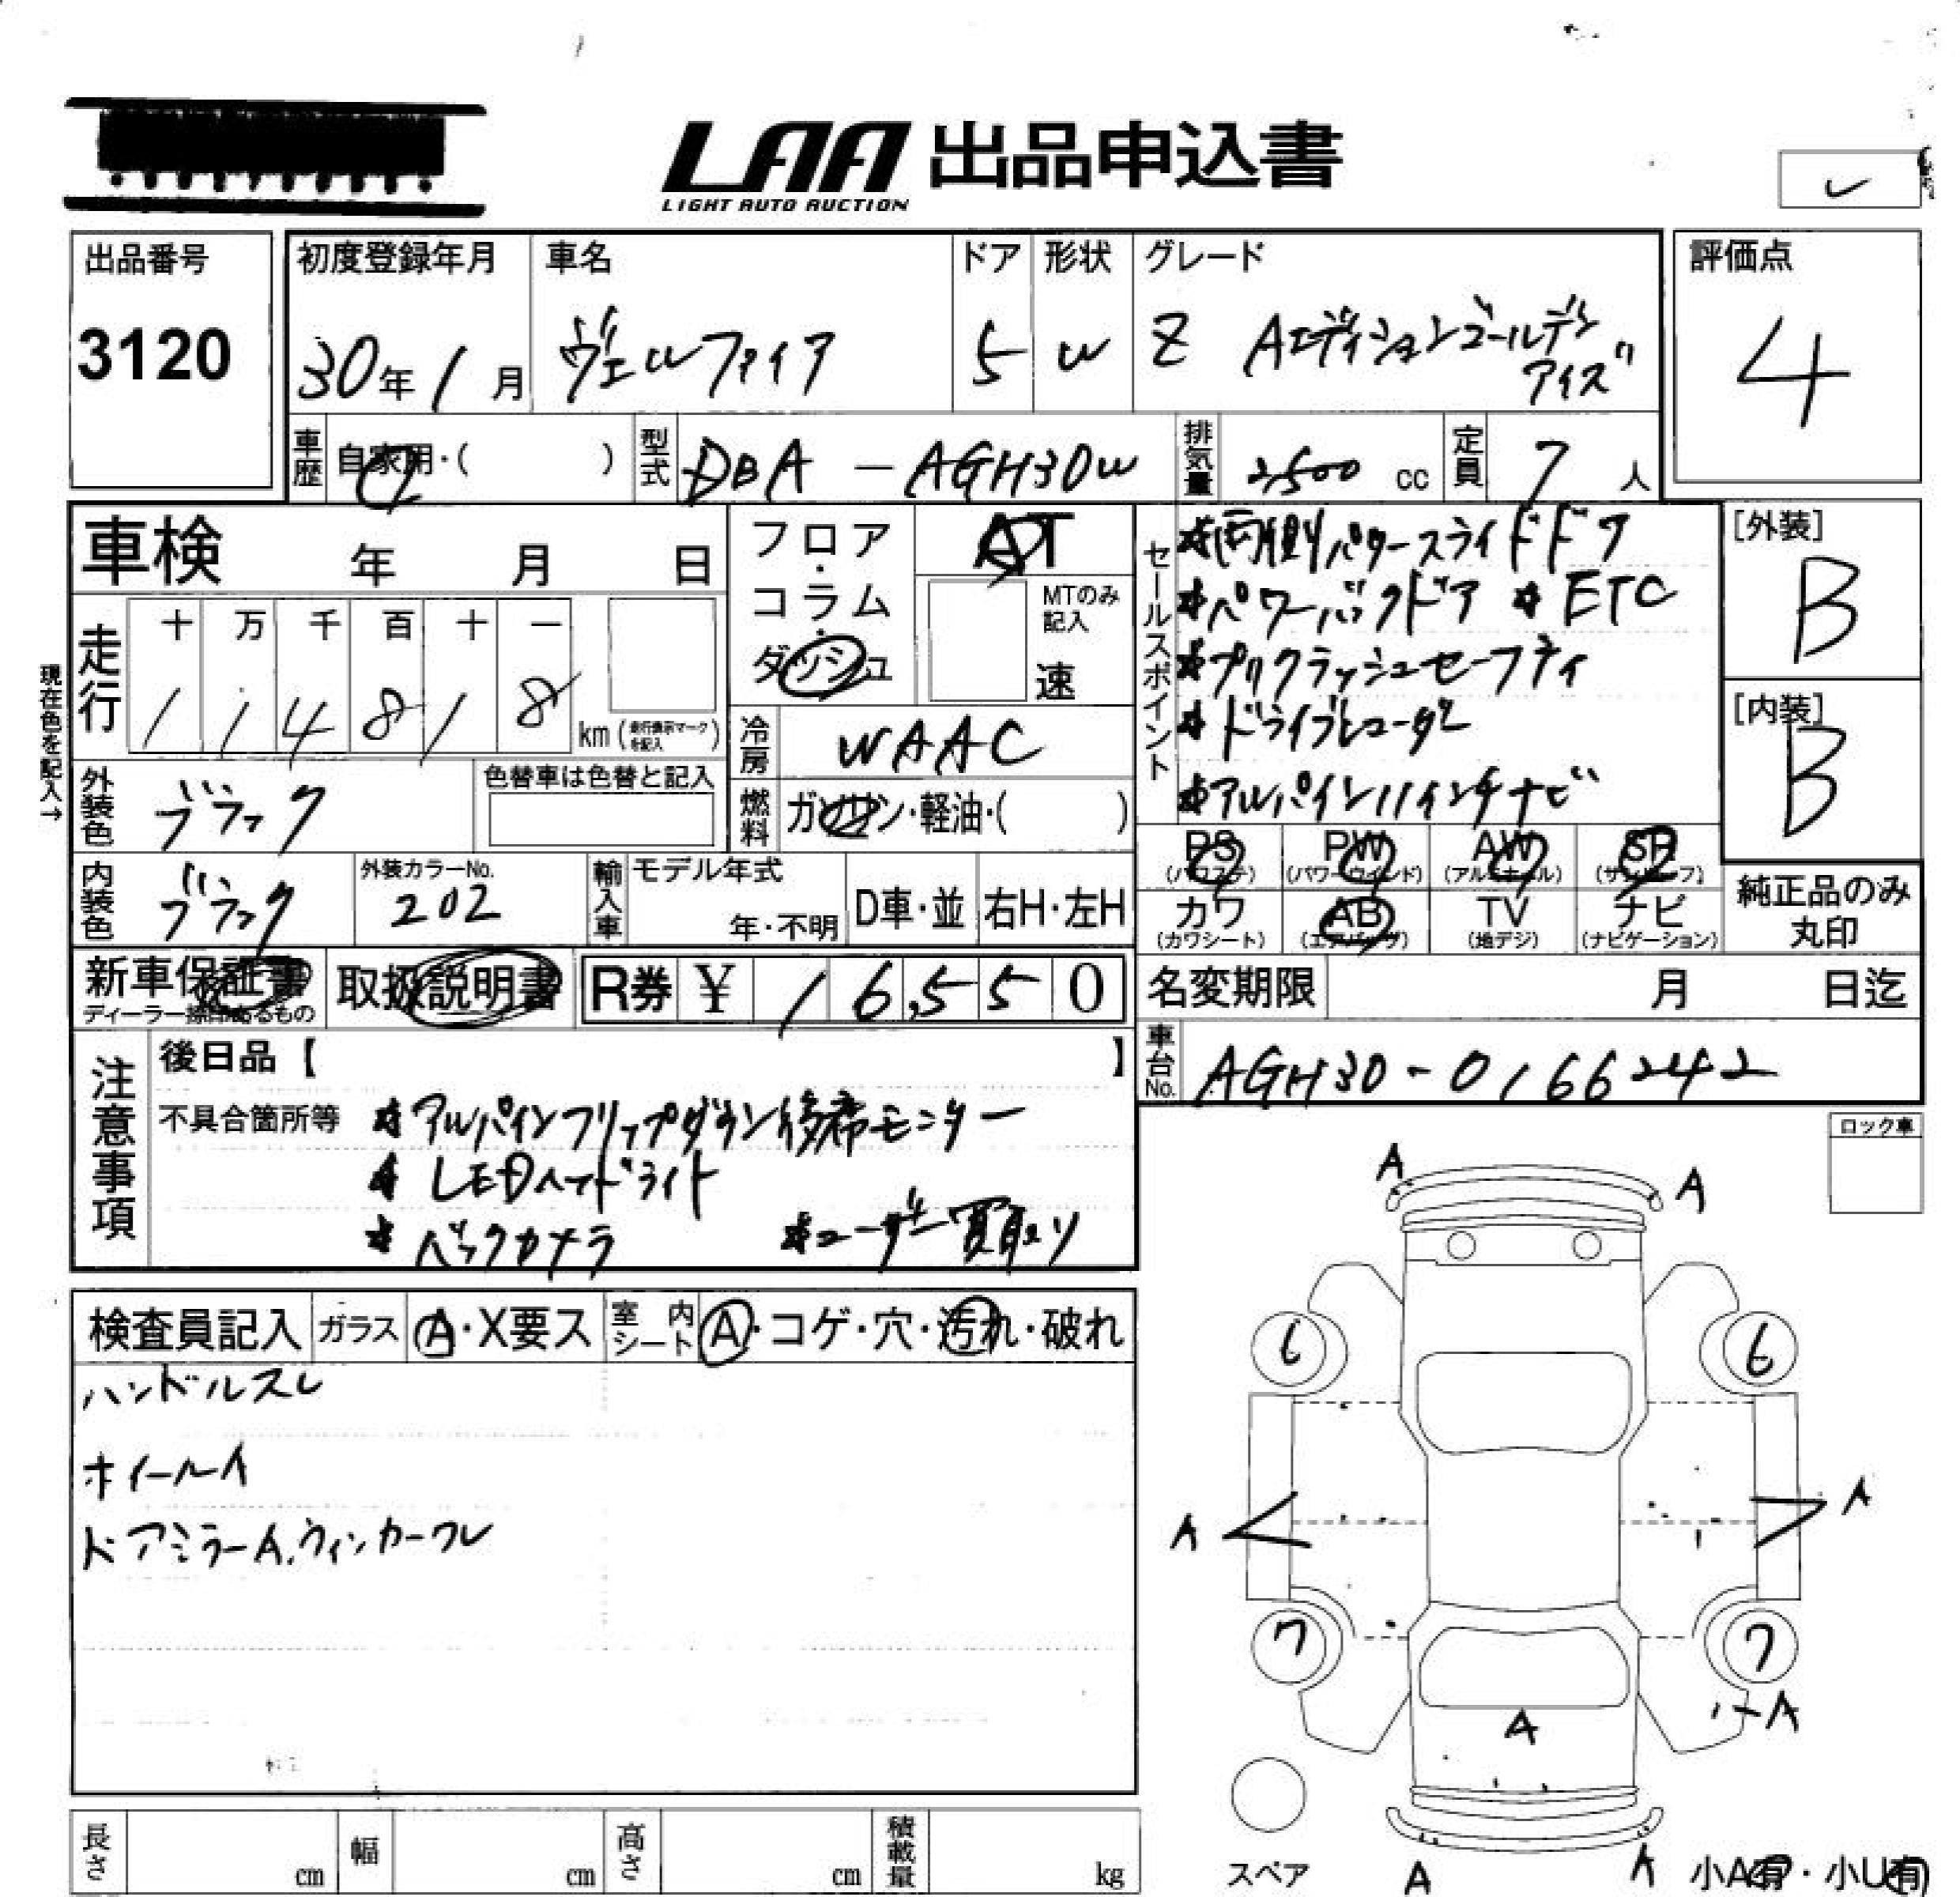 LAA 出品申込書
LIGHT AUTO AUCTION
出品番号
3120
初度登録年月
30年 1月
車名
ヴェルファイア
ドア
5
形状
W
グレード
Z Aエディションゴールデン
アイズ
評価点
4
車歴 自家用・( )
型式 DBA-AGH30W
排気量 2500 cc
定員 7 人
車検 年 月 日
走行
十 万 千 百 十 一
1 1 4 8 1 8 km (走行表示マークを記入)
現在色を記入→
フロア・コラム・ダッシュ
AT
MTのみ記入
速
冷房 WAAC
燃料 ガソリン・軽油・( )
外装色 ブラック
色替車は色替と記入
内装色 ブラック
外装カラーNo.
202
輸入車
モデル年式
年・不明
D車・並
右H・左H
セールスポイント
*両側パワースライドドア
*パワーバックドア *ETC
*プリクラッシュセーフティ
*ドライブレコーダー
*アルパイン11インチナビ
[外装]
B
[内装]
B
PS (パワステ)
PW (パワーウインド)
AW (アルミホイール)
SR (サンルーフ)
カワ (カワシート)
AB (エアバッグ)
TV (地デジ)
ナビ (ナビゲーション)
純正品のみ
丸印
新車保証書
ディーラー捺印あるもの
取扱説明書
R券 ¥ 16,550
名変期限 月 日迄
車台No. AGH30-0166242
注意事項
後日品【 】
不具合箇所等 *アルパインフリップダウン後席モニター
*LEDヘッドライト
*バックカメラ *ユーザー買取り
検査員記入
ガラス A・X要ス
室内シート A・コゲ・穴・汚れ・破れ
ハンドルスレ
ホイールA
ドアミラーA.ウィンカーワレ
ロック車
A A
6 6
A A
7 7
A
A
スペア
A A
小A有・小U有
長さ cm
幅 cm
高さ cm
積載量 kg